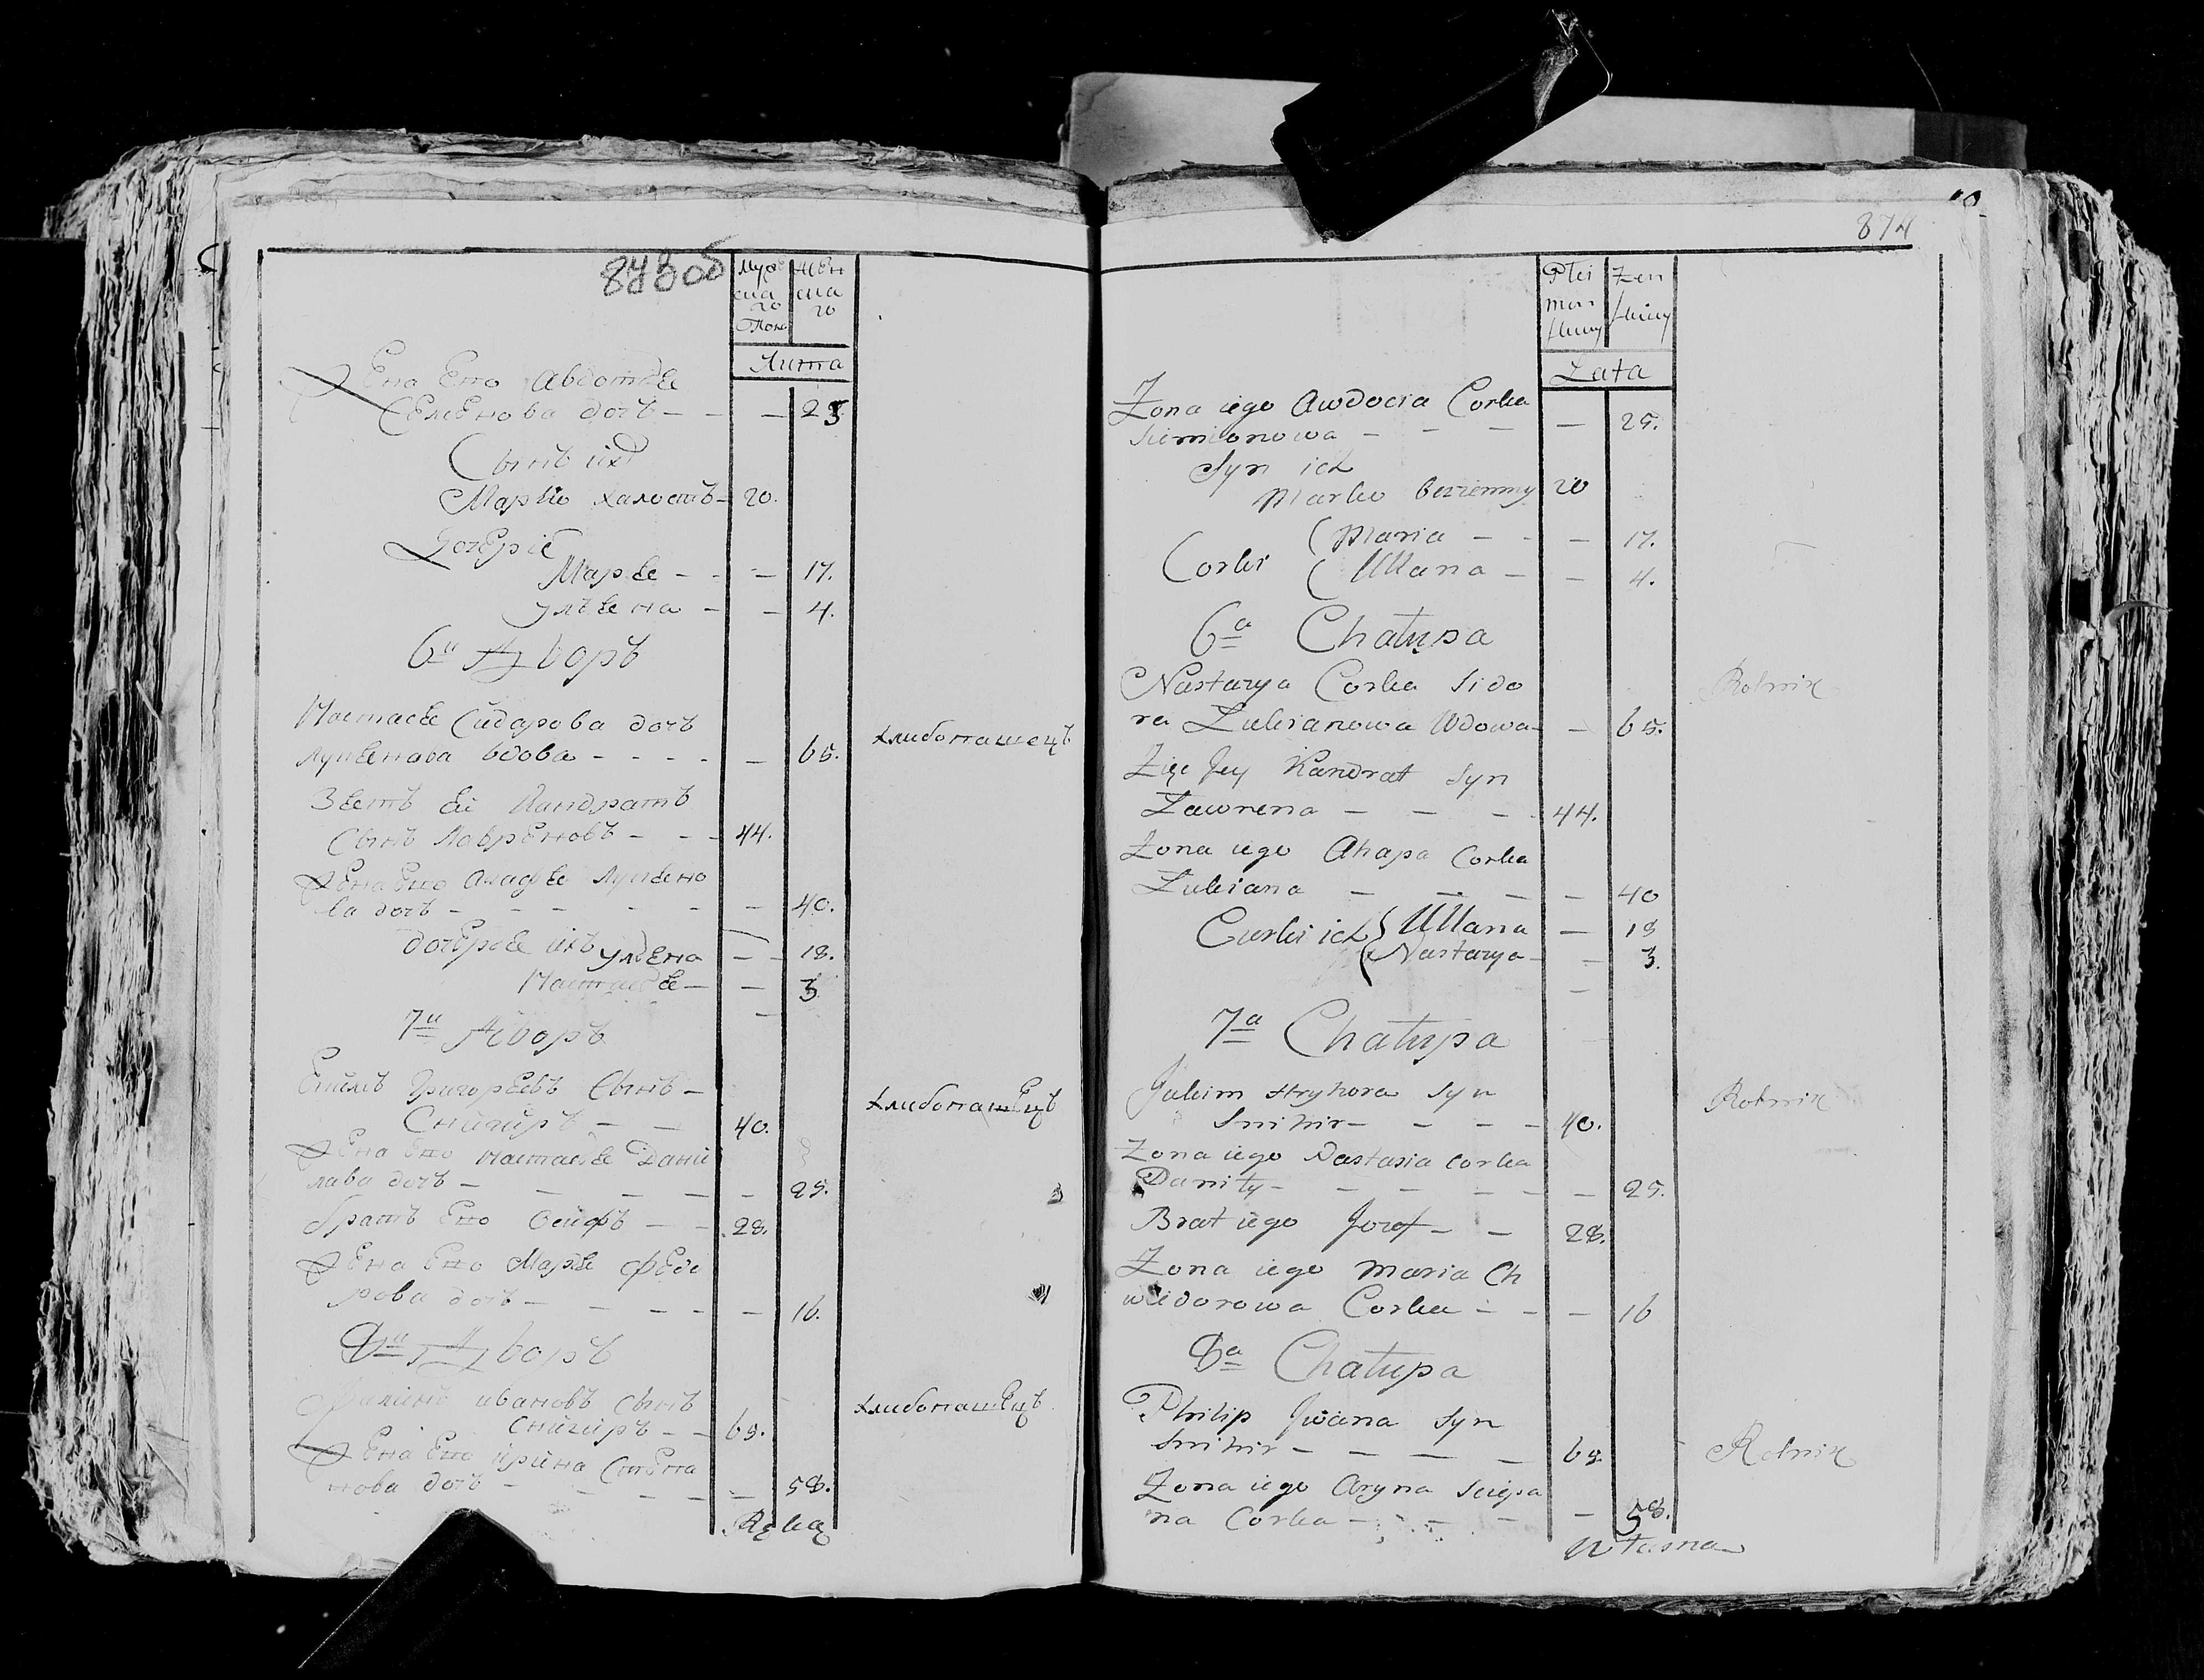 873об
Муж ска го Полу
Жен ска го
Лита
Жена Его Авдотъя
Семенова дочь - - - 25
Сынъ ихъ
Марко халостъ - 20.
Дочери
Маръя - - - 17.
Улъяна - - 4.
6й Дворъ
Настасъя Сидарова дочъ
Лукъянава вдова - - - - - 65. хлибопашецъ
Зять Еи Кандратъ
Сынъ Лаврѣновъ - - - 44.
Жена Его Агафья Лукъяно
ва дочъ - - - - - - 40.
дочеръи ихъ Улъяна - - 18.
Настасъя - - 3
7й Дворъ
Екимъ Григоръевъ Сынъ -
Снигиръ - - 40. хлибопашецъ
Жена Его Настасъя Дани
лава дочъ - - - - - - 25.
братъ Его Осифъ - - 28.
Жена Его Маръя Феде
рова дочъ - - - - - 16.
8й Дворъ
Филипъ ивановъ Сынъ
Снигиръ - - 69. хлибопашецъ
Жена Его Ирина Степа
нова дочъ - - - - - 58.
Ręką
874
Płci męz skiey
Żen skiey
Lata
Zona iego Awdocia Corka
Siemionowa - - - - - 25.
Syn ich
Marko bezzenny 20
Corki ( Maria - - - 17.
( Ullana - - 4.
6a Chałupa
Nastazya Corka Sido
ra Łukianowa Wdowa - - 65. Rolnik
Zięć Jey Kandrat Syn
Ławrena - - - 44.
Zona iego Ahapa Corka
Łukiana - - - - 40
Curki ich { Ullana - 18
Nastazya - - 3.
7a Chałupa
Jakim Hryhora Syn
Snihir - - - - 40. Rolnik
Zona iego Nastasia Corka
Daniły - - - - - - 25.
Brat iego Jozef - - 28.
Zona iego Maria Ch
wiedorowa Corka - - - 16
8a Chałupa
Philip Jwana Syn
Snihir - - - - 69. Rolnik
Zona iego Aryna Sciepa
na Corka - - - - - 58.
własną